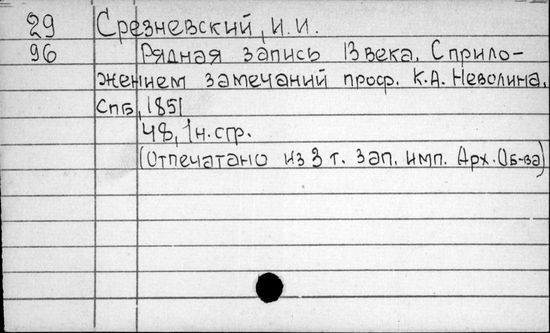 29 Срезневский, И. И.
96 Рядная запись 13 века. С прило-
жением замечаний проф. К.А. Неволина.
Спб, 1851
48, 1 н. стр.
(Отпечатано из 3 т. зап. имп. Арх. Об-ва)